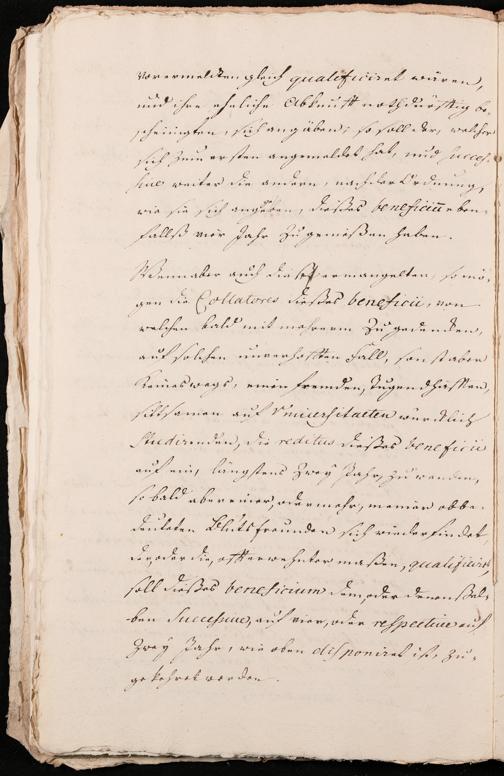 vorermelten gleich qualificiret wären,
und ihre eheliche Abkunfft nothdürfftig be-
scheinigten, sich angäben; so soll der, welcher
sich zum ersten angemeldet hat, und succes-
sive weiter die andern, nach der Ordnung,
wie sie sich angeben, dießes beneficii eben-
fallß vier Jahr zu genießen haben.
Wenn aber auch diese ermangelten, so mö-
gen die Collatores dießes beneficii, von
welchen bald mit mehrerm zu gedencken,
auf solchen unverhofften Fall, sonst aber
keineswegs, einen frembden, tugendhafften,
sittsamen auf Universitaeten würcklich
Studirenden, die reditus dießes beneficii
auf ein, längstens zwey Jahr, zu wenden,
so bald aber einer, oder mehr, meiner obbe-
deuteten Blutsfreunden sich wieder findet,
der, oder die, offterwehnter maßen, qualificiret,
soll dießes beneficium dem, oder denenßel-
ben successive, auf vier, oder respective auf
zwey Jahr, wie oben disponiret ist, zu-
gekehret werden.